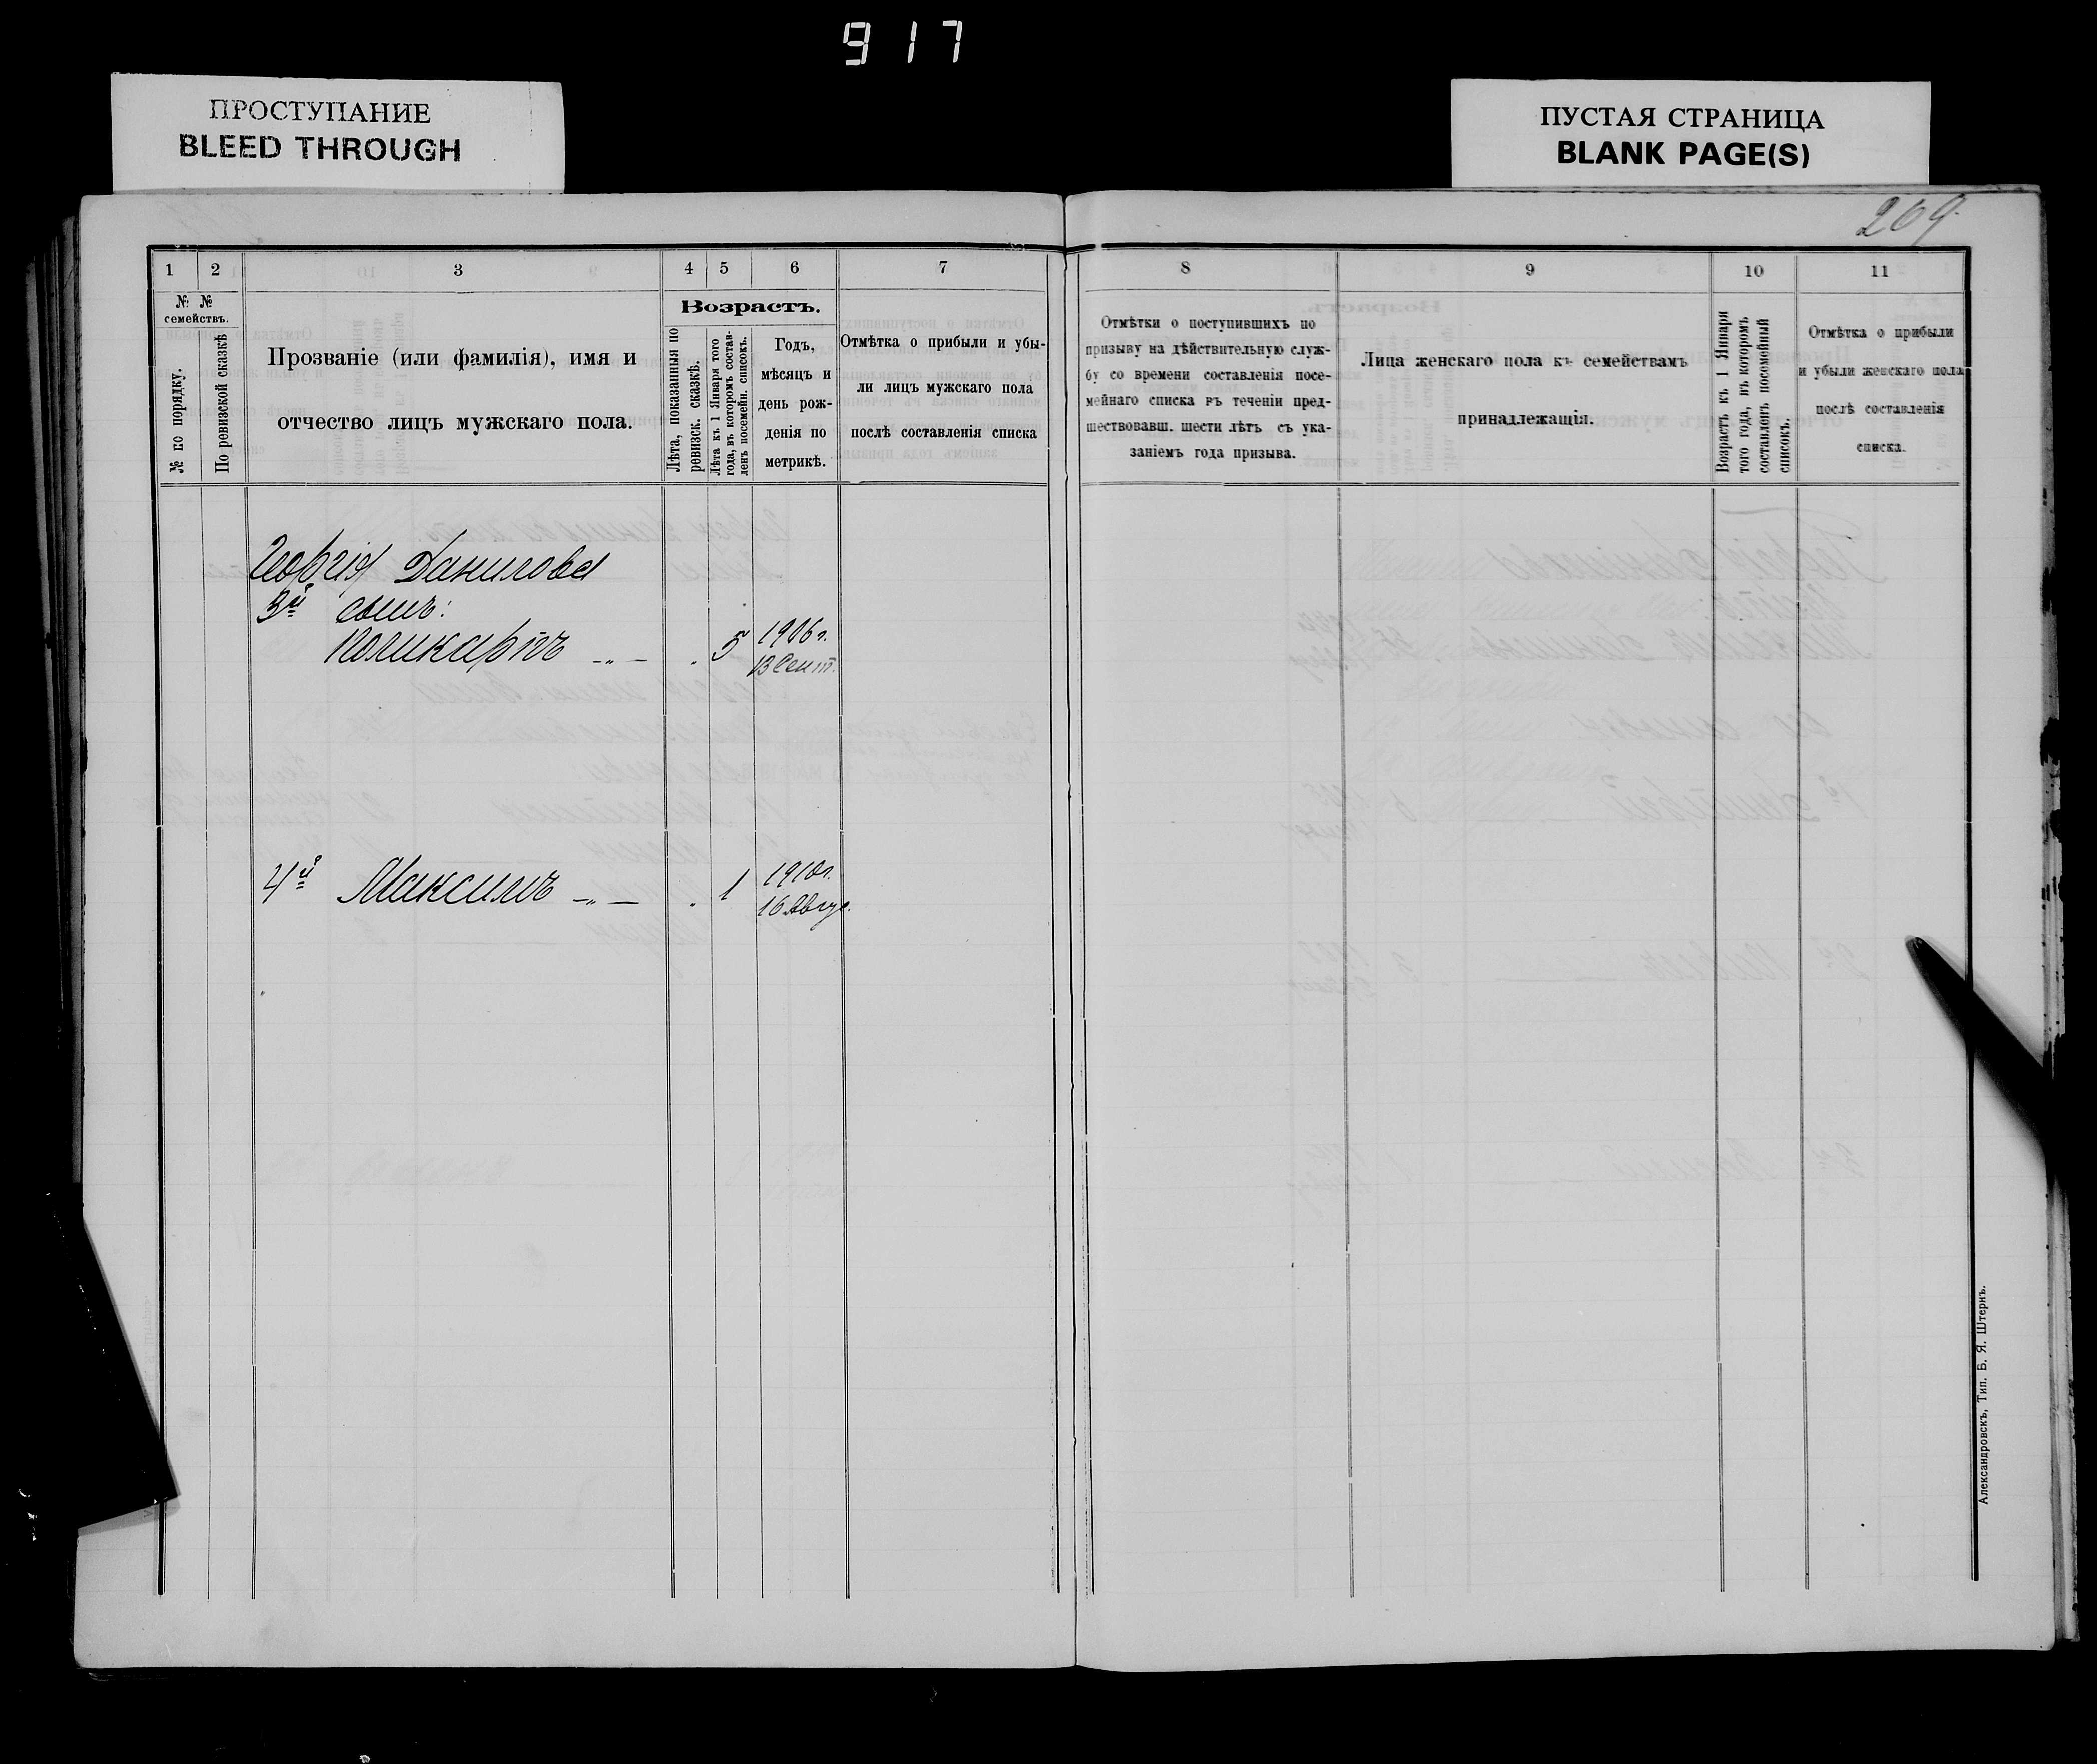 917
ПРОСТУПАНИЕ
BLEED THROUGH
ПУСТАЯ СТРАНИЦА
BLANK PAGE(S)
209
1 2 3 4 5 6 7
№ № семействъ.
№ по порядку.
По ревизской сказкѣ
Прозваніе (или фамилія), имя и
отчество лицъ мужскаго пола.
Возрастъ.
Лѣта, показанныя по
ревизск. сказкѣ.
Лѣта къ 1 Января того
года, въ которомъ состав-
ленъ посемейн. списокъ.
Годъ,
мѣсяцъ и
день рож-
денія по
метрикѣ.
Отмѣтка о прибыли и убы-
ли лицъ мужскаго пола
послѣ составленія списка
Георгія Данилова
3й сынъ:
Поликарпъ -„- „ 5 1906 г.
13 Сент.
4й Максимъ -„- „ 1 1910 г.
16 Авгус.
8 9 10 11
Отмѣтки о поступившихъ по
призыву на дѣйствительную служ-
бу со времени составленія посе-
мейнаго списка въ теченіи пред-
шествовавш. шести лѣтъ съ ука-
заніемъ года призыва.
Лица женскаго пола къ семействамъ
принадлежащія.
Возрастъ къ 1 Января
того года, въ которомъ
составленъ посемейный
списокъ.
Отмѣтка о прибыли
и убыли женскаго пола
послѣ составленія
списка.
Александровскъ, Тип. Б. Я. Штернъ.